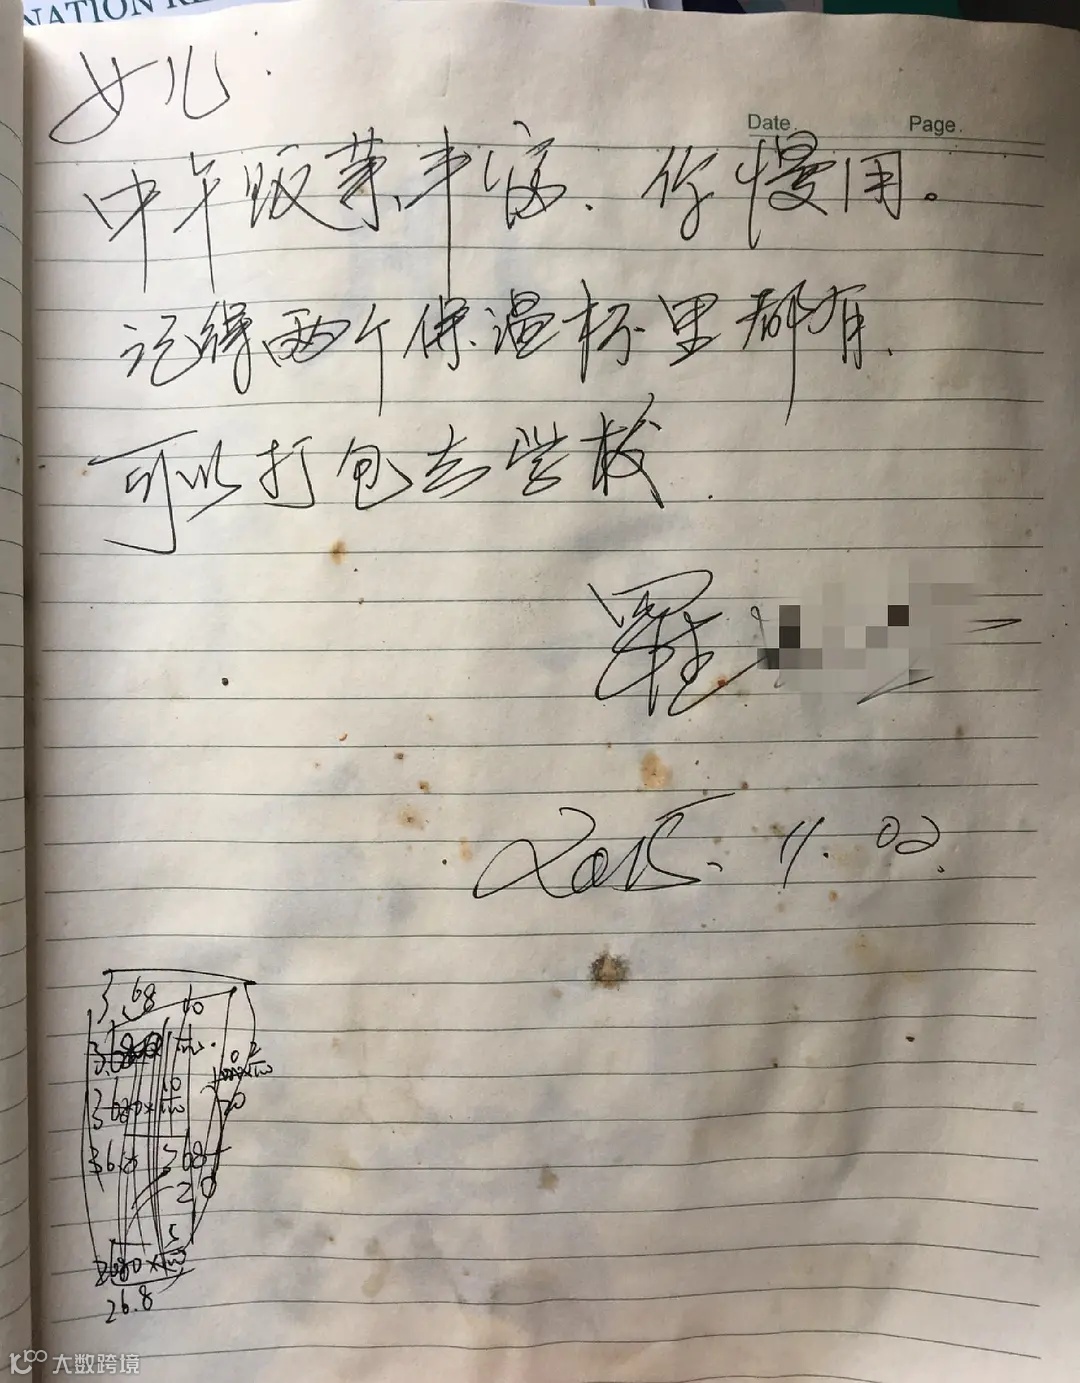 NATION RE
Date.
Page.
女儿.
中午饭菜丰富.你慢用。
记得两个保温杯里都有.
可以打包去学校.
2015.11.02.
3.68
10
20
26.8
大数跨境